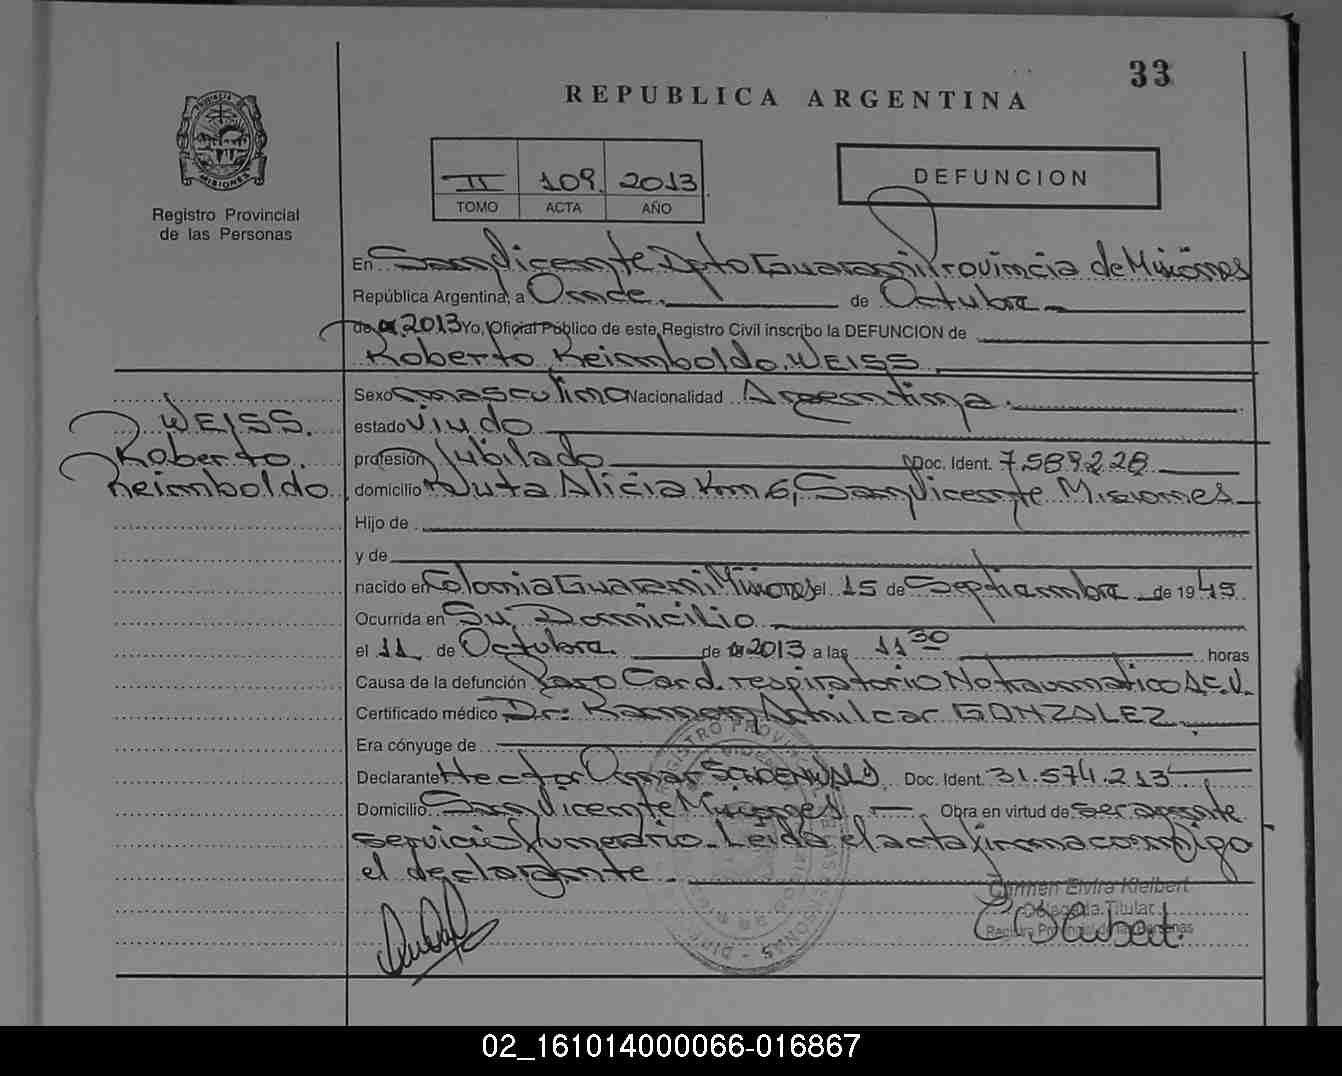 33
REPUBLICA ARGENTINA
PROVINCIA DE
MISIONES
Registro Provincial
de las Personas
II 109. 2013
TOMO ACTA AÑO
DEFUNCION
En San Vicente Dpto Guarani Provincia de Misiones
República Argentina, a Once. de Octubre
de 2013 Yo, Oficial Público de este Registro Civil inscribo la DEFUNCION de
Roberto Reimboldo WEISS
WEISS.
Roberto.
Reimboldo
Sexo masculino Nacionalidad Argentina.
estado viudo
profesión Jubilado Doc. Ident. 7.589.228
domicilio Ruta Alicia Km 6, San Vicente Misiones
Hijo de
y de
nacido en Colonia Guarani Misiones el 15 de Septiembre de 1945
Ocurrida en Su Domicilio
el 11 de Octubre. de 2013 a las 11 30 horas
Causa de la defunción Paro Card. respiratorio No traumatico A.C.V.
Certificado médico Dr: Ramon Amilcar GONZALEZ
Era cónyuge de
Declarante Hector Omar Doc. Ident. 31.574.213
Domicilio San Vicente Misiones Obra en virtud de ser agente
servicio funerario. Leida el acta firma conmigo
el declarante.
Carmen Elvira Kleibert
Delegada Titular
Registro Provincial de las Personas
02_161014000066-016867